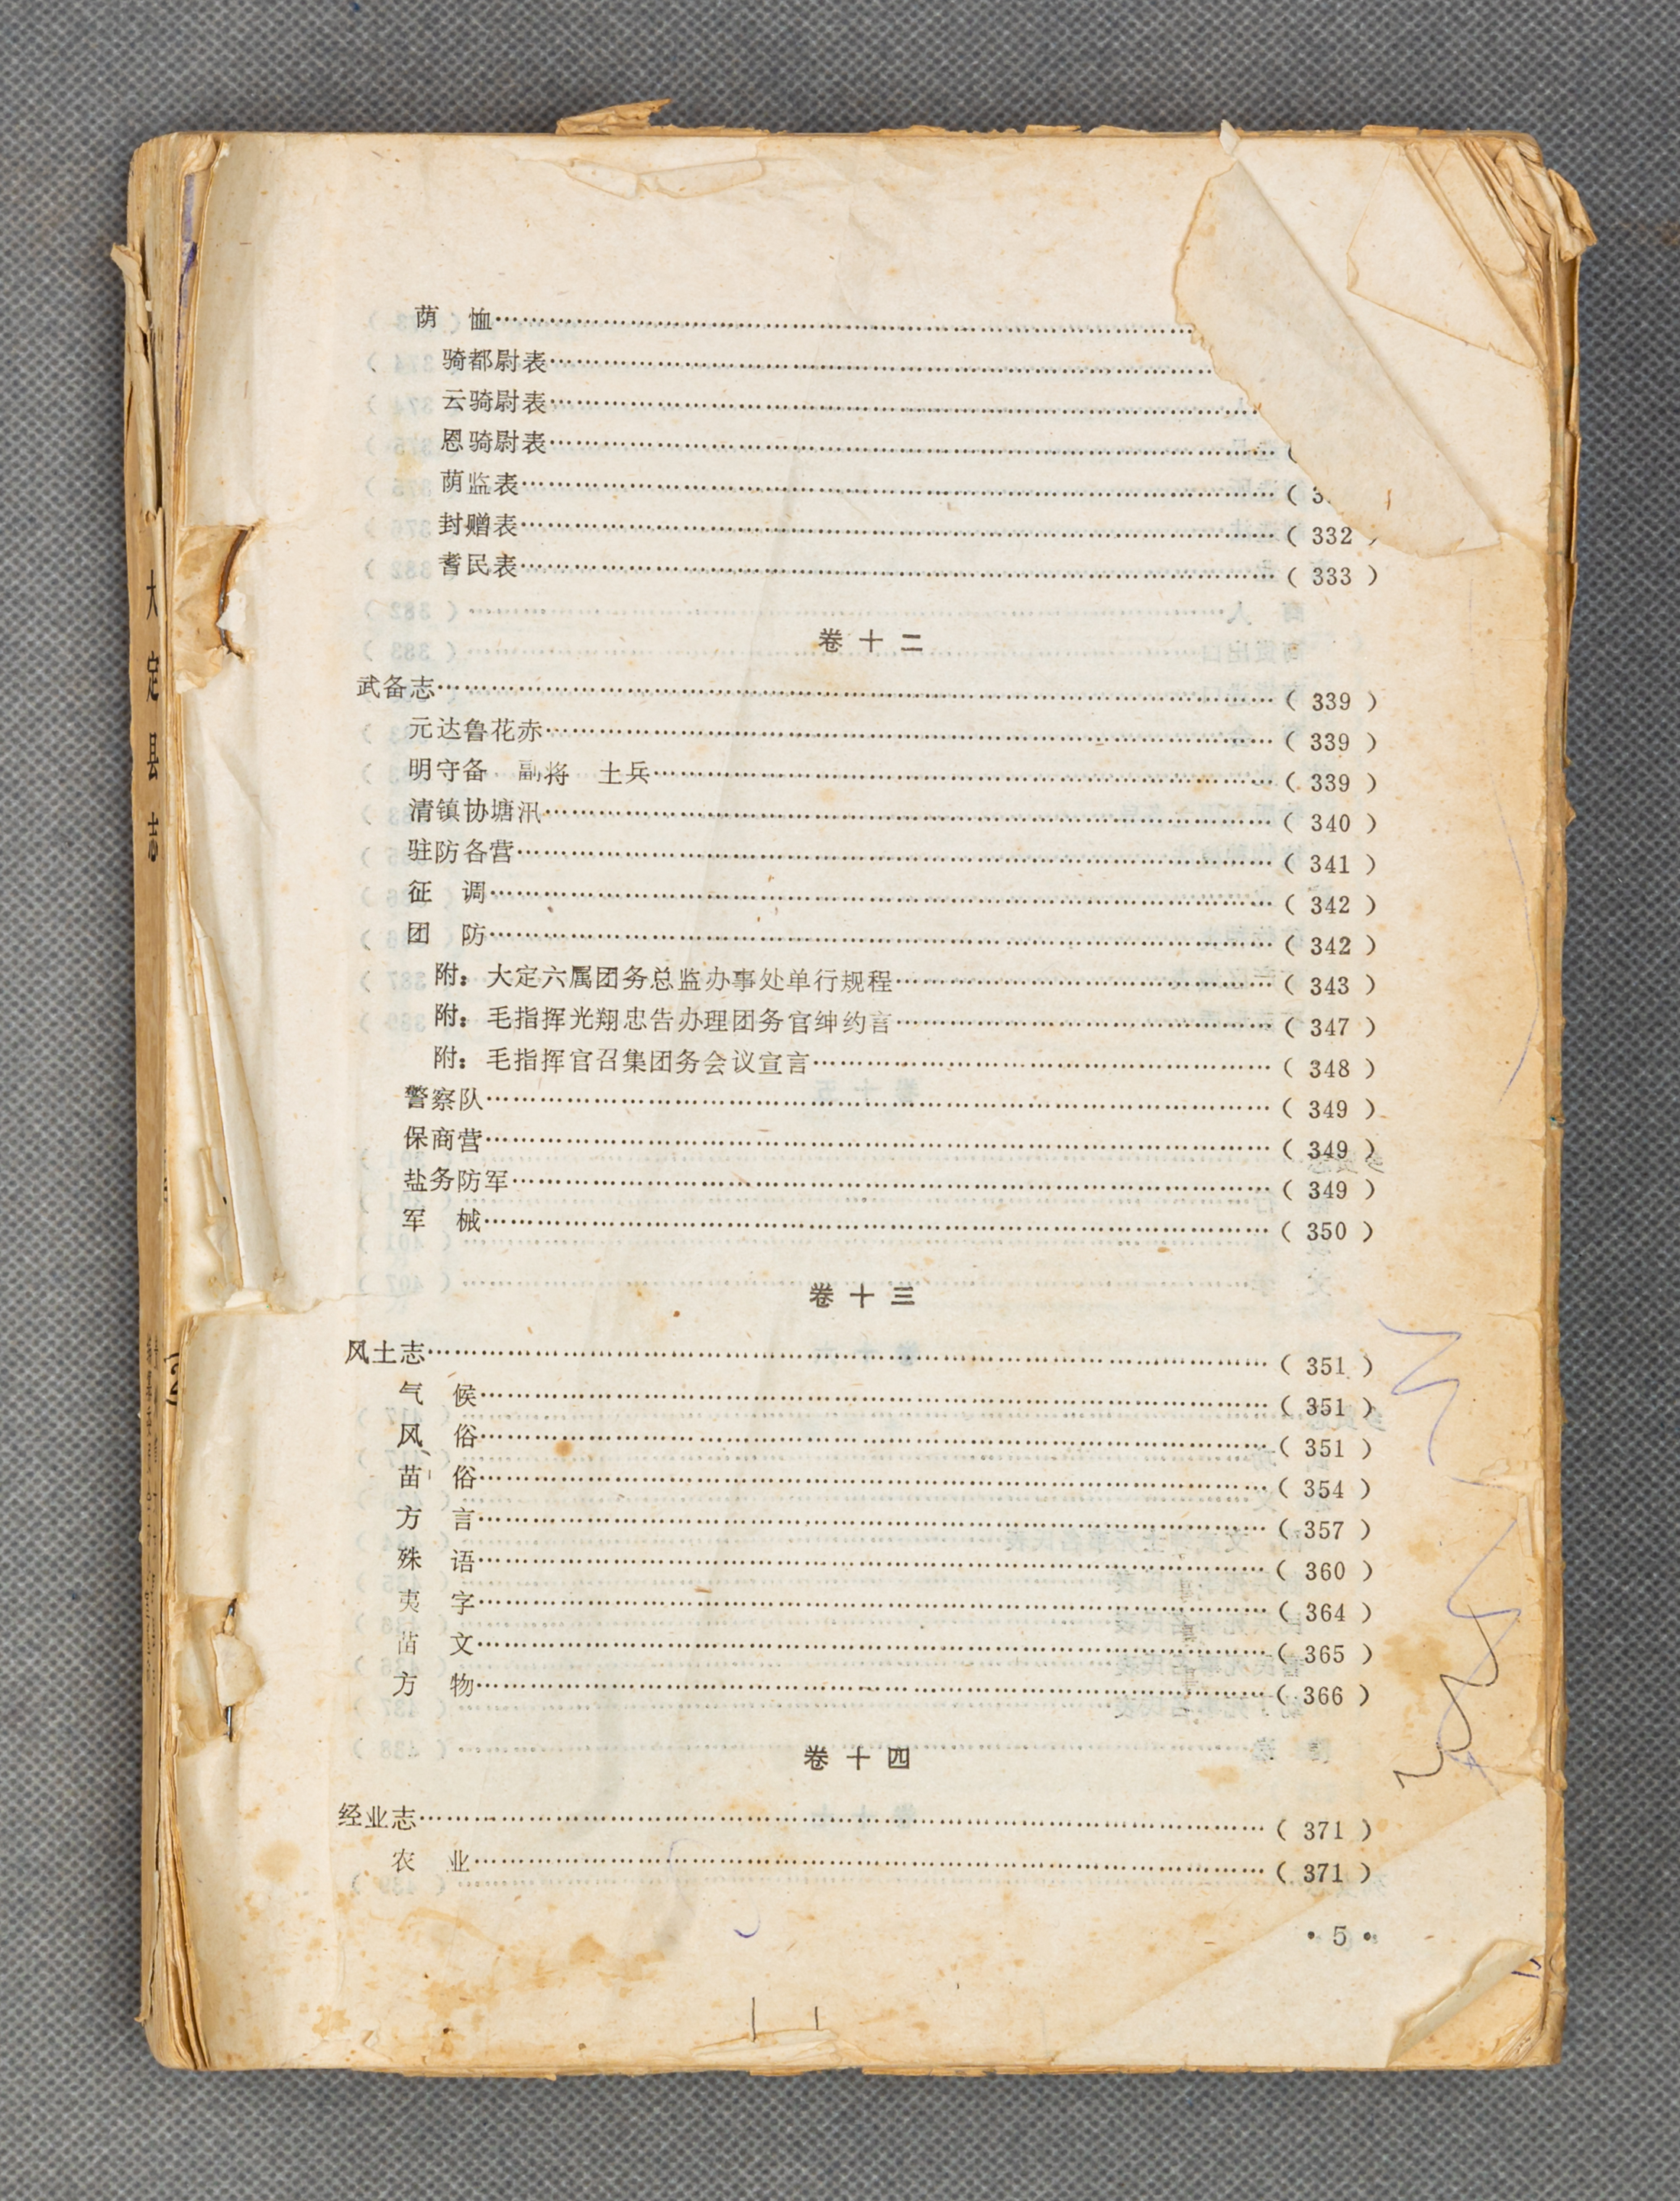 荫　恤……
骑都尉表……
云骑尉表……
恩骑尉表……(
荫监表……( 3
封赠表……( 332 )
耆民表……( 333 )
卷十二
武备志……( 339 )
元达鲁花赤……( 339 )
明守备　副将　土兵……( 339 )
清镇协塘汛……( 340 )
驻防各营……( 341 )
征　调……( 342 )
团　防……( 342 )
附：大定六属团务总监办事处单行规程……( 343 )
附：毛指挥光翔忠告办理团务官绅约言……( 347 )
附：毛指挥官召集团务会议宣言……( 348 )
警察队……( 349 )
保商营……( 349 )
盐务防军……( 349 )
军　械……( 350 )
卷十三
风土志……( 351 )
气　候……( 351 )
风　俗……( 351 )
苗　俗……( 354 )
方　言……( 357 )
殊　语……( 360 )
夷　字……( 364 )
苗　文……( 365 )
方　物……( 366 )
卷十四
经业志……( 371 )
农　业……( 371 )
• 5 •
大定县志